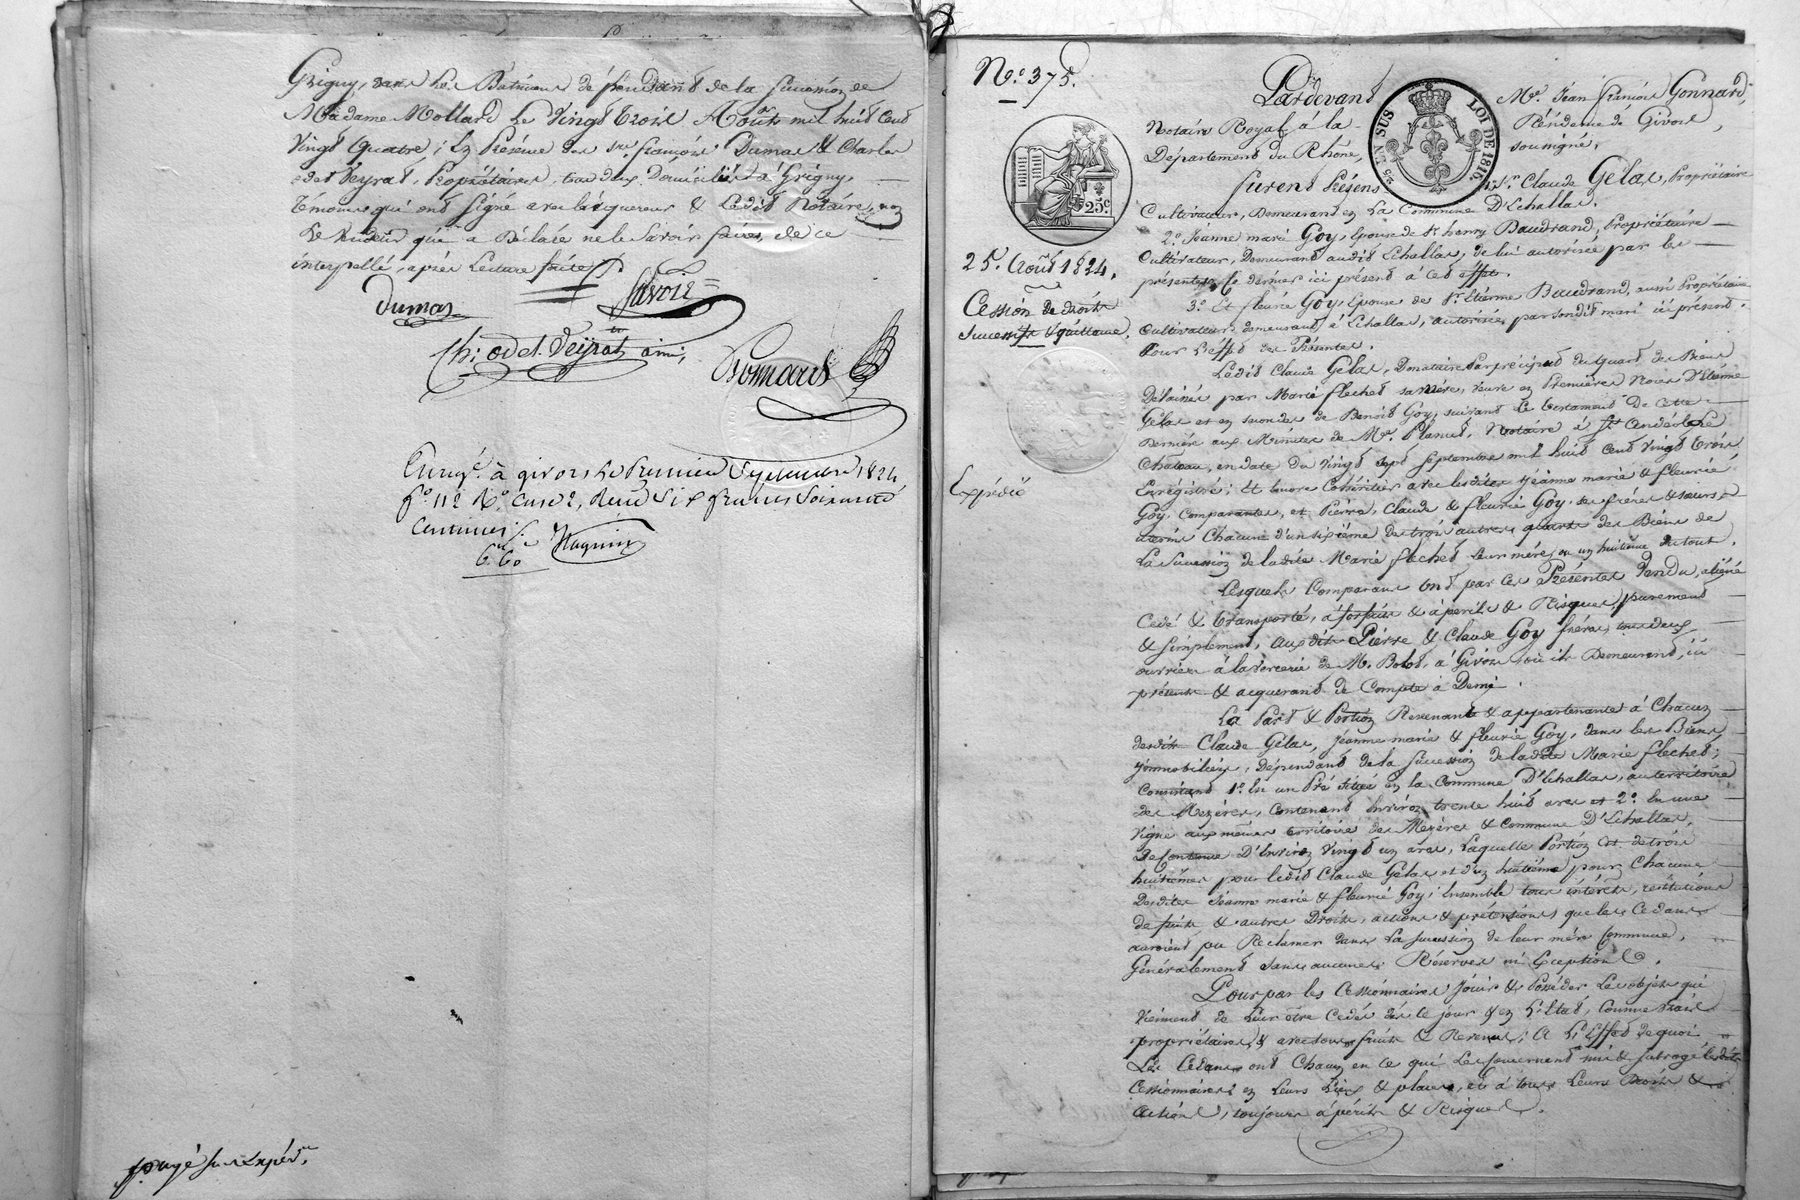 Grigny, dans les Bâtimens dépendans de la succession de
Madame Mollard Le Vingt trois Août mil huit cent
Vingt quatre; En Présence des srs. françois Dumas & Charles
odet Veyrat, Propriétaires, tous deux Domiciliés à Grigny,
témoins qui ont signé avec l'acquéreur & Ledit Notaire, non
Le Vendeur qui a Déclaré ne le Savoir faire, de ce
interpellé, après Lecture faite /.
Dumas
Savoie
Ch: odet. Veyrat ami;
Gonnard
Enregé. à givors, Le Premier Septembre 1824
fo. 112 Vo. Case 2, Reçu Six francs Soixante
Centimes /.
6f. 60
payé sur expédn.
No. 375.
25 c
25. Août 1824.
Cession de droits
Successifs & quittance.
Expédié
Pardevant Me. Jean françois Gonnard,
Notaire Royal à la Résidence de Givors,
Département du Rhône, soussigné,
25 EN SUS LOI DE 1816.
furent Présens 1o. sr. Claude Gelas, Propriétaire
Cultivateur, Demeurant en La Commune D'Echallas.
2o. Jeanne marie Goy, Epouse de sr. henry Baudrand, Propriétaire
Cultivateur, Demeurant audit Echallas, de lui autorisée par les
présentes, Ce dernier ici présent à cet éffet.
3o. Et fleurie Goy, Epouse de sr. Etienne Baudrand, aussi Propriétaire
Cultivateur demeurant à Echallas, autorisée par sondit mari ici présent
Pour L'éffet des Présentes.
Ledit Claude Gelas, Donataire Par préciput du quart des Biens
Délaissés par Marie flechet sa mère, Veuve en Premières Noces D'Etienne
Gelas et en secondes de Benoit Goy, suivant Le testament De cette
Dernière aux Minutes de Me. Planut, Notaire à St. Andéol le
Château, en date du Vingt sept septembre mil huit Cent Vingt trois
Enrégistré; Et encore Cohéritier avec lesdites Jeanne marie & fleurie
Goy, Comparantes, et Pierre, Claude & fleurie Goy, ses frères & sœurs
uterins Chacun d'un sixième des trois autres quarts des Biens de
La Succession de ladite Marie flechet Leur mère, ou un huitième du tout.
Lesquels Comparans Ont par Ces Présentes Vendu, aliéné
Cédé & transporté, à forfait & à périls & Risques, purement
& simplement, Aux dits Pierre & Claude Goy frères, tous deux
ouvriers à la Verrerie de M. Bolot, à Givors où ils Demeurent, ici
présents & acquerant de Compte à Demi.
La Part & Portion Revenante & appartenante à Chacun
desdits Claude Gelas, Jeanne marie & fleurie Goy, dans les Biens
immobiliers, Dépendant de la succession de ladite Marie flechet;
Consistant 1o. En un Pré situé en la Commune D'Echallas, au territoire
des Mezères, Contenant Environ trente huit ares et 2o. En une
Vigne aux mêmes territoire des Mezères & Commune D'Echallas,
De Contenue D'Environ Vingt un ares, Laquelle Portion est de trois
huitièmes pour ledit Claude Gelas et d'un huitième pour Chacune
Desdites Jeanne marie & fleurie Goy; Ensemble tous intérêts, restitutions
de fruits & autres Droits, actions & prétensions que les Cédans
auroient pu Réclamer dans La succession de leur mère Commune,
Généralement sans aucunes Réserves ni Exception.
Pour par les Cessionnaires Jouir & Posséder Les objets qui
Viennent de Leur être Cédés dès ce jour & en L'Etat, Comme Vrais
propriétaires & avec tous fruits & Revenus; A L'Effet de quoi
Les Cédans ont Chacun en ce qui Les Concernent mis & subrogé lesdits
Cessionnaires en Leurs Lieu & place, et à tous Leurs Droits &
Actions, toujours à périls & Risques.